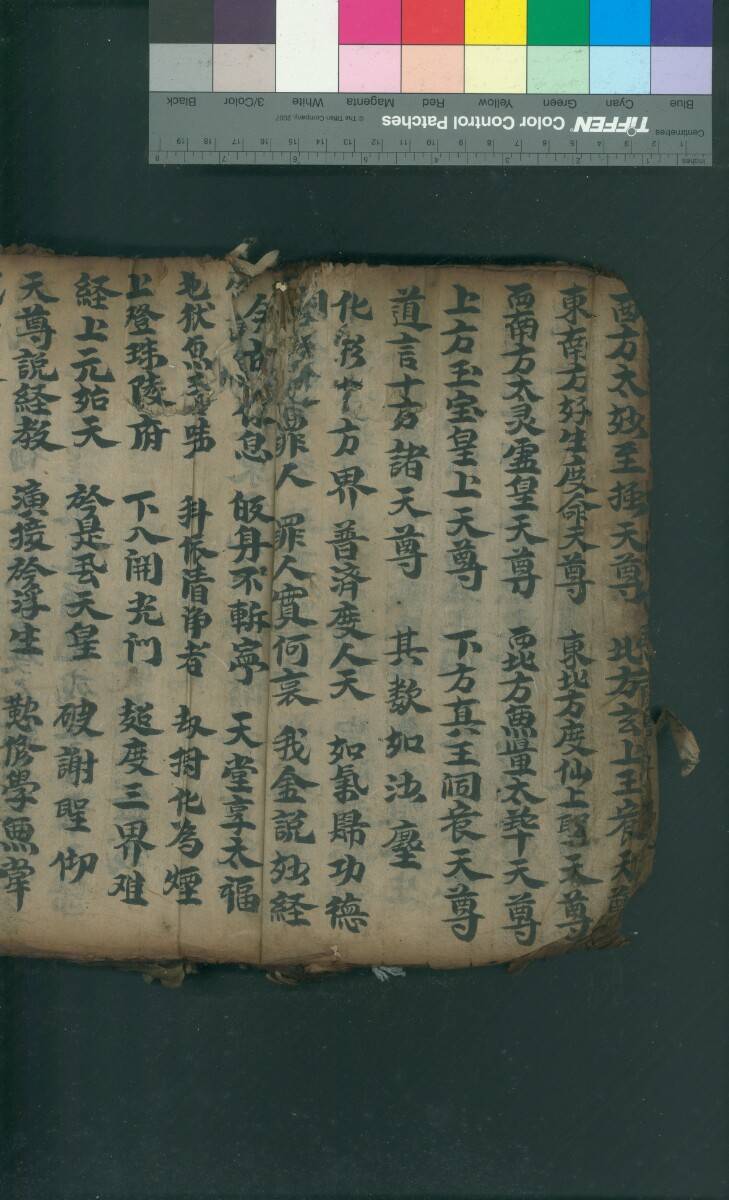 西方太妙至極天尊 北方玄上玉宸天尊
東南方好生度命天尊 東北方度仙上聖天尊
西南方太灵虛皇天尊 西北方無量太華天尊
上方玉宝皇上天尊 下方真王洞宸天尊
道言十方諸天尊 其数如沙塵
化形十方界 普濟度人天 如氣歸功德
罪人 罪人實何哀 我今說妙経
息 皈身不暫寧 天堂享太福
地狱無 科依清净者 劫科化為煙
上登珠陵府 下入開光门 超度三界难
経上元始天 於是丟天皇 破謝聖仰
天尊説経教 演接於浮生 勤修學無常
Inches
Centimetres
TIFFEN Color Control Patches
© The Tiffen Company, 2007
Blue Cyan Green Yellow Red Magenta White 3/Color Black